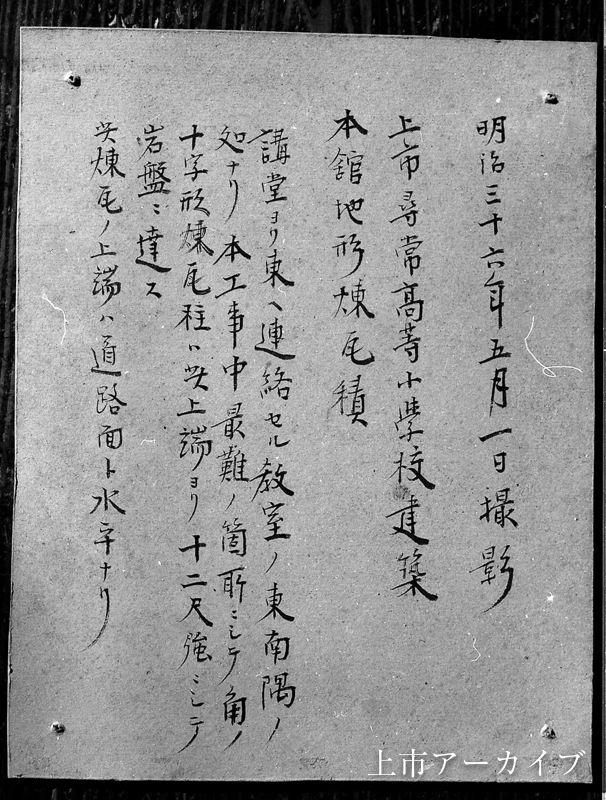 明治三十六年五月一日撮影
上市尋常高等小學校建築
本舘地形煉瓦積
講堂ヨリ東ヘ連絡セル教室ノ東南隅ノ
如ナリ本工事中最難ノ箇所ニシテ角ノ
十字形煉瓦柱ハ其上端ヨリ十二尺強ニシテ
岩盤ニ達ス
其煉瓦ノ上端ハ道路面ト水平ナリ
上市アーカイブ